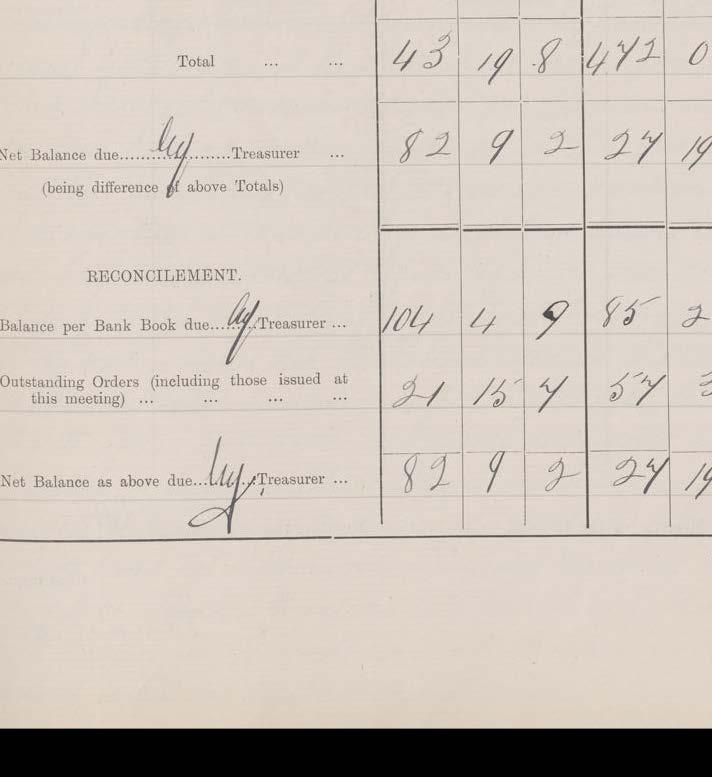 Total ... ... 43 19 8 472 0
Net Balance due...by...Treasurer ... 82 9 2 27 19
(being difference of above Totals)
RECONCILEMENT.
Balance per Bank Book due...by...Treasurer ... 104 4 9 85 2
Outstanding Orders (including those issued at
this meeting) ... ... ... ... 21 15 7 57 3
Net Balance as above due...by...Treasurer ... 82 9 2 27 19